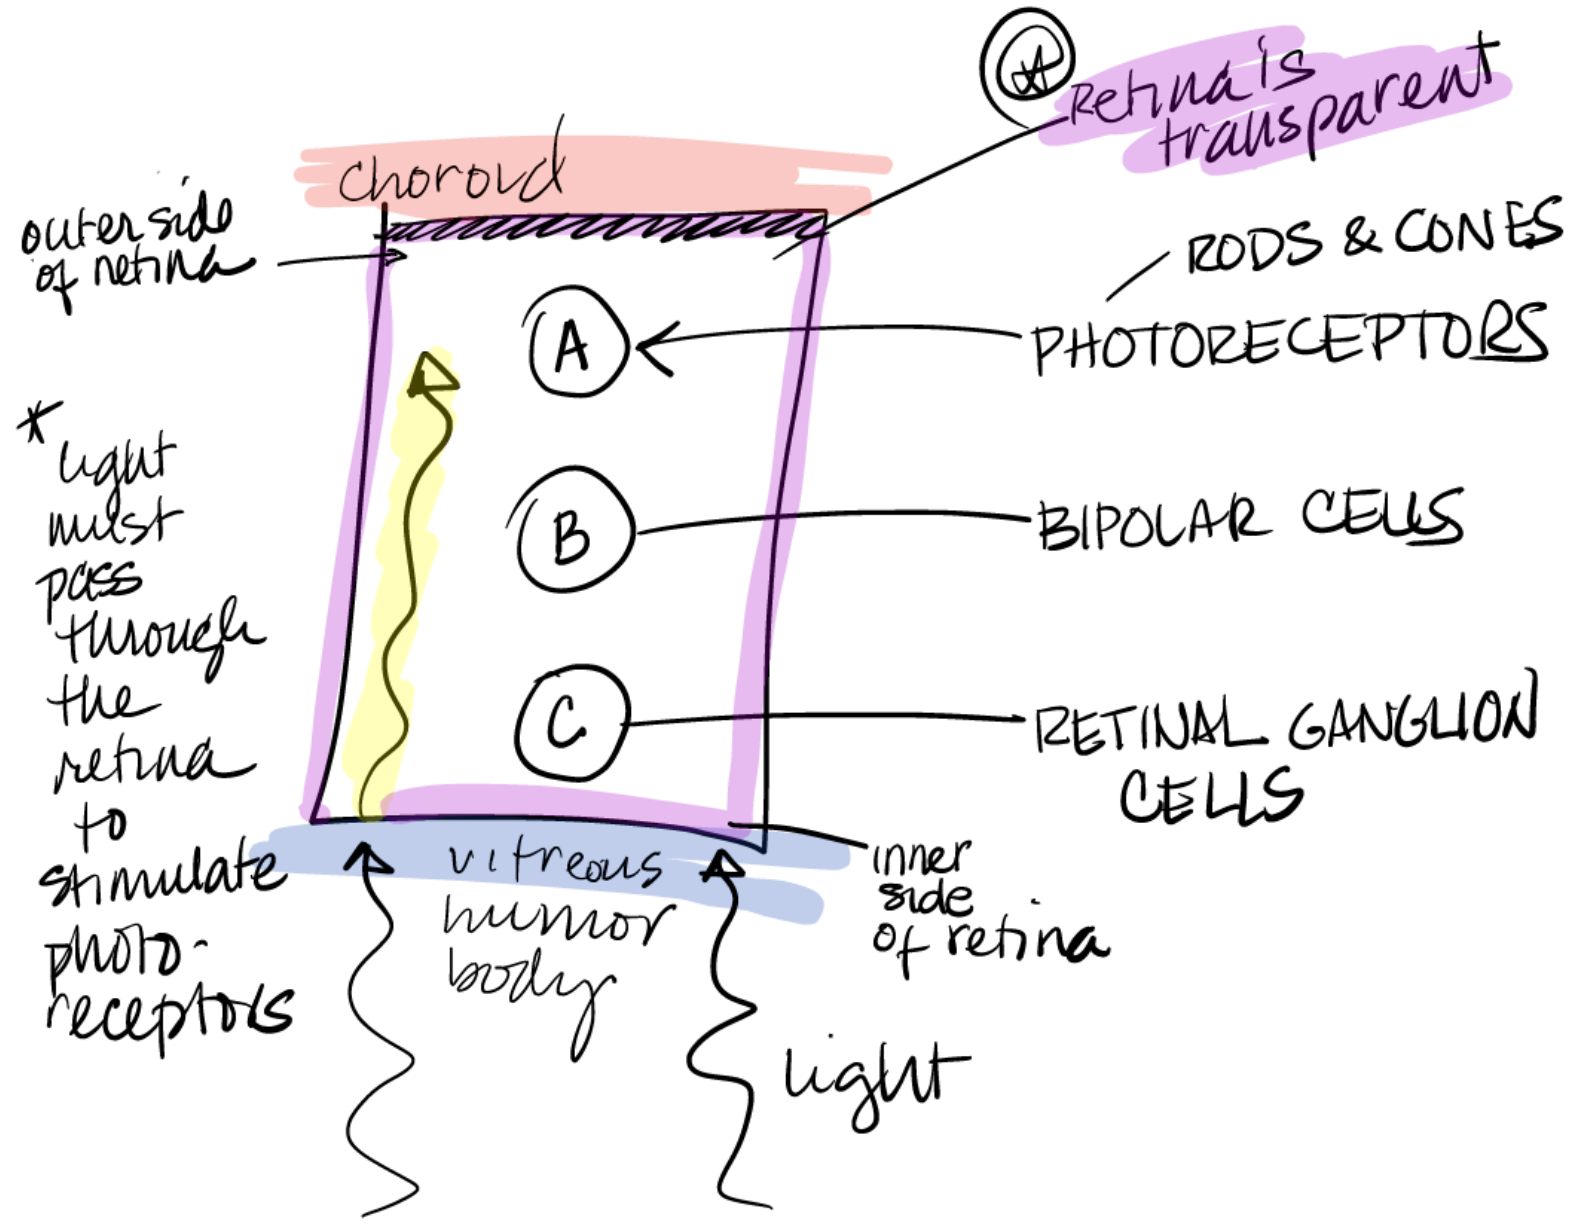 Retina is
transparent
choroid
outer side
of retina
RODS & CONES
A
PHOTORECEPTORS
*
light
must
pass
through
the
retina
to
stimulate
photo-
receptors
B
BIPOLAR CELLS
C
RETINAL GANGLION
CELLS
vitreous
humor
body
inner
side
of retina
light